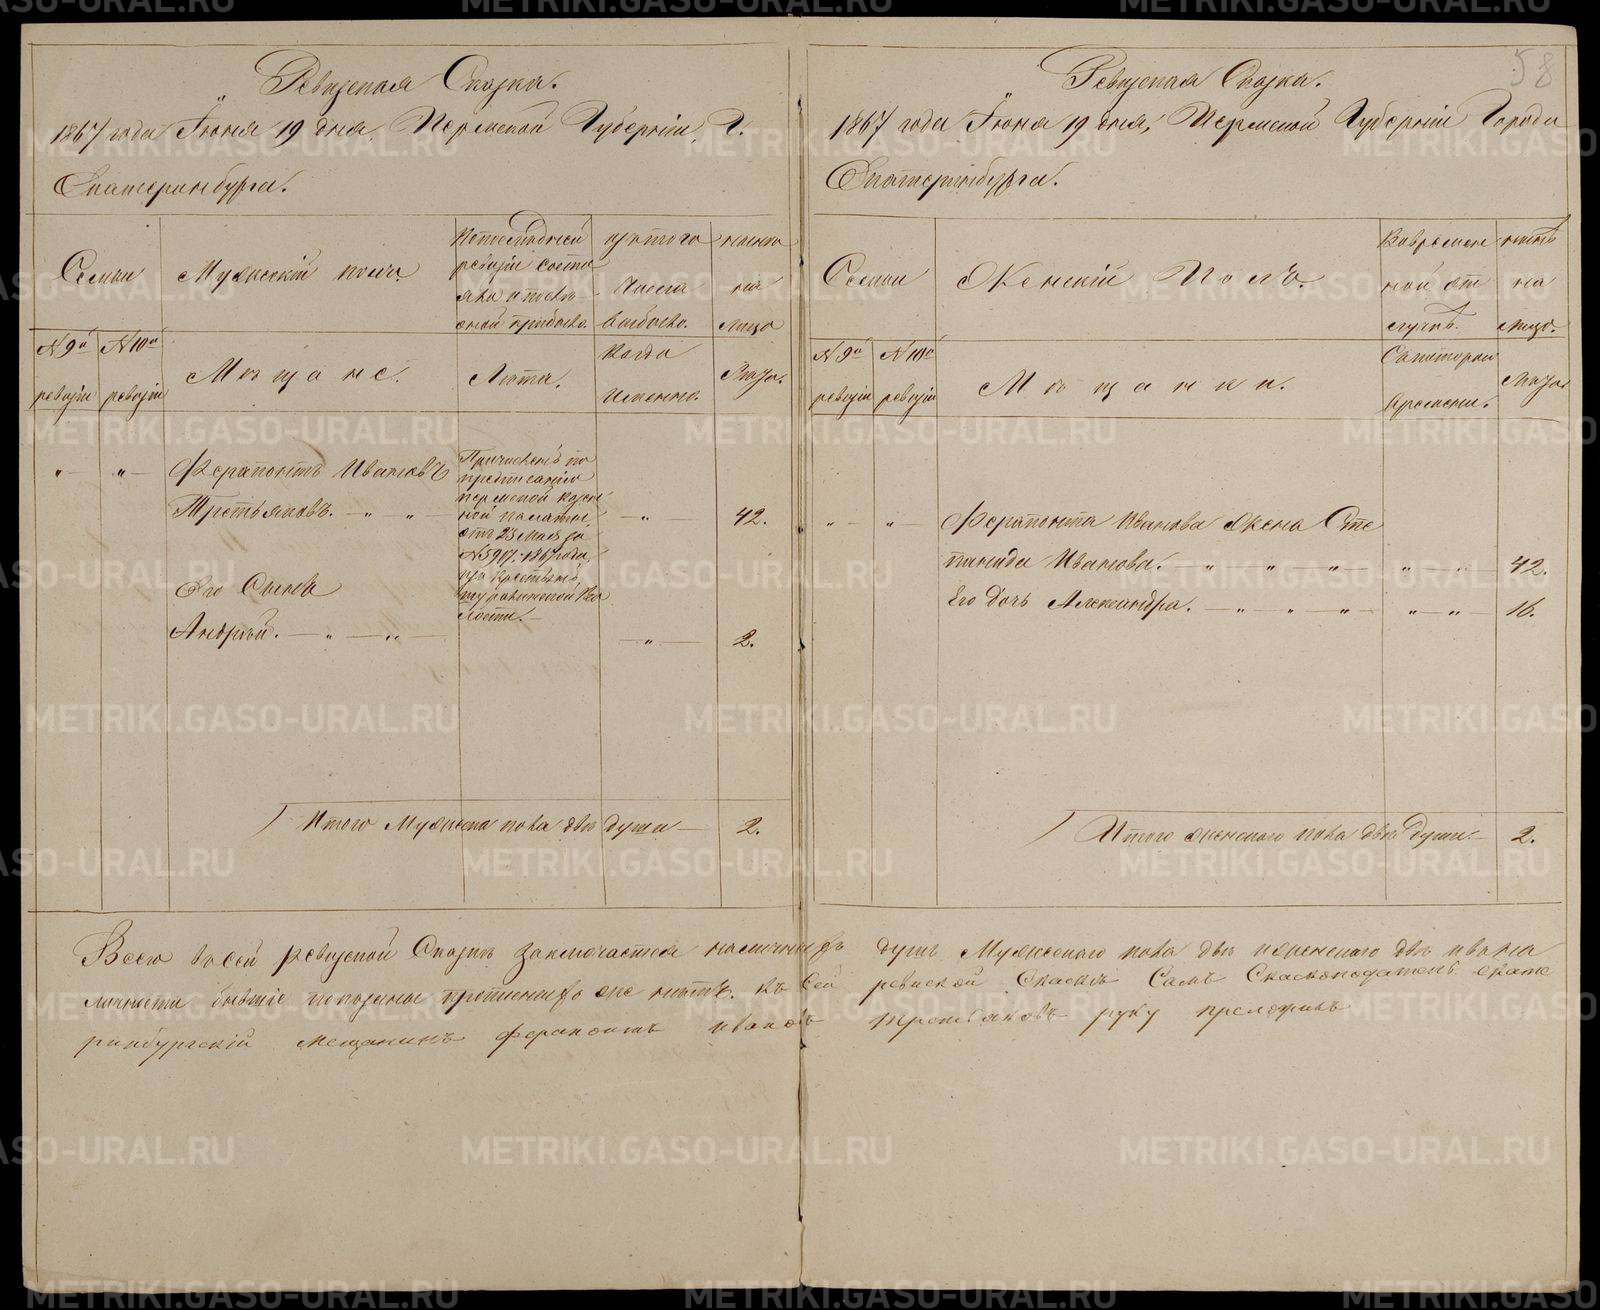 58
Ревизская Сказка.
1867 года Іюня 19 дня, Пермской Губерніи, Г.
Екатеринбурга.
Семьи
Мужескій полъ.
По последней
ревизіи состо
яло и после
оной прибыло.
изъ того
числа
выбыло.
нынѣ
на
лицо
№ 9й
ревизіи
№ 10й
ревизіи
Мѣщане.
Лѣта.
Когда
именно.
Лѣта.
" — " —
Ферапонтъ Ивановъ
Третьяковъ. — " — " —
Причисленъ по
предписанію
пермской казен
ной палаты
отъ 23 Мая за
№ 5907. 1867 года,
изъ крестьянъ,
Во
лости. —
— " —
42.
Его Сынъ
Андрей. — " — " —
— " —
2.
Итого Мужеска пола двѣ души —
2.
Ревизская Сказка.
1867 года Іюня 19 дня, Пермской Губерніи Города
Екатеринбурга.
Семьи
Женскій Полъ.
Во времен
ной от
лучкѣ.
нынѣ
на
лицо.
№ 9й
ревизіи
№ 10й
ревизіи
Мѣщанки.
Съ котораго
времени.
Лѣта.
" — "
Ферапонта Иванова жена Сте
панида Иванова. — " — " — " — " — " —
42.
Его дочь Александра. — " — " — " — " — " —
16.
Итого женского пола двѣ души. —
2.
Всего в сей ревизской Сказкѣ заключается наличныхъ душъ Мужеского пола двѣ и женского двѣ
ревиской Скаскѣ Самъ Скаскоподатель Екате
ринбургскій мещанинъ ферапонтъ ивановъ третьяковъ руку приложилъ
METRIKI.GASO-URAL.RU